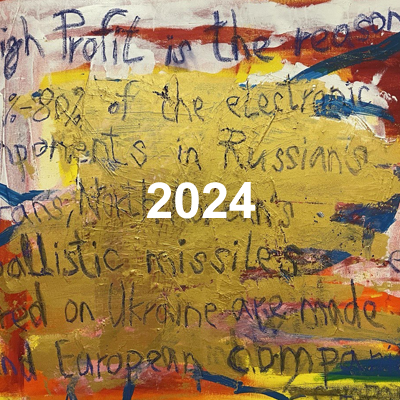 igh Profit is the reason
%-80% of the electronic
mponents in Russian's
ans, North 2024 n's
ballistic missiles
red on Ukraine are made
nd European compan